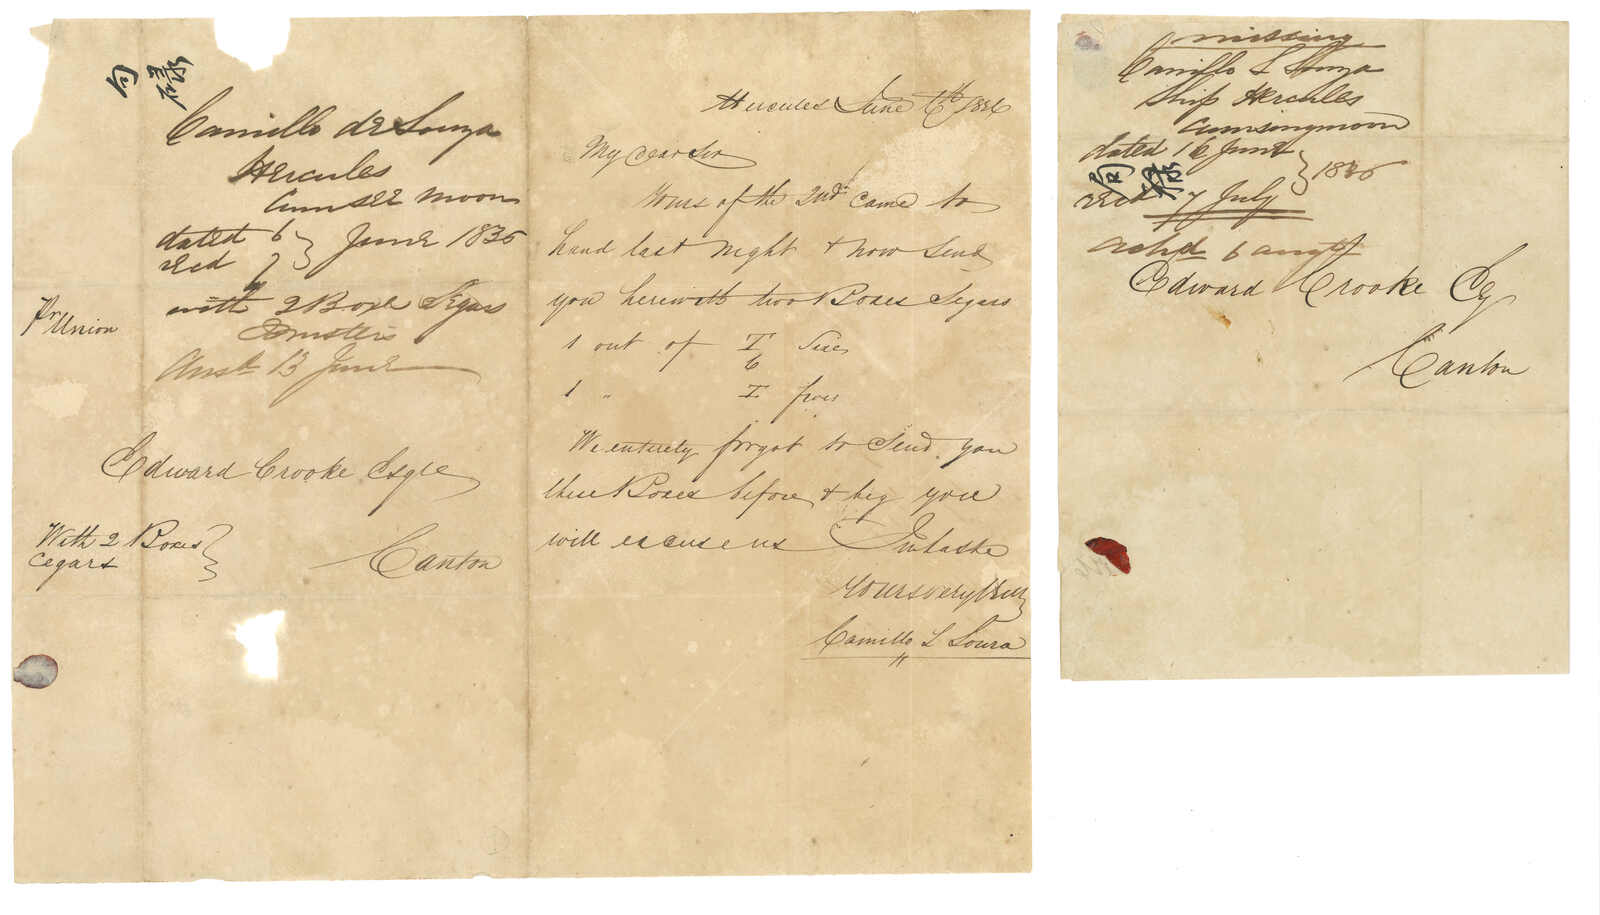 Camillo de Souza
Hercules
Cumsee moon
dated 6 } June 1836
recd 7
with 2 Boxe Segars
Ansd 13 June
Pr Union
Edward Crooke Esqre
With 2 Boxes }
Cegars
Canton
Hercules June 6th 1836
My dear Sir
Yours of the 2nd came to
hand last night & now send
you herewith two Boxes Segars
1 out of I/6 Sexes
1 " I fives
We entirely forgot to send you
these Boxes before & beg you
will excuse us In haste
Yours very truly
Camillo L Souza
missing
Camillo L Souza
Ship Hercules
Cumsingmoon
dated 16 June } 1836
recd 7 July
Edward Crooke Esq
Canton